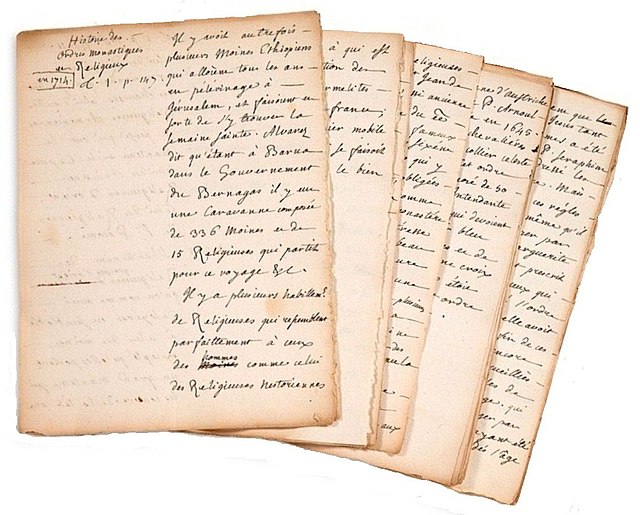 Histoire des
Ordres monastiques
et Religieux
en 1714
t. 1. p. 147.
Il y avoit autrefois
plusieurs Moines Ethiopiens
qui alloient tous les ans
en pelerinage à
Jerusalem, et faisoient en
sorte de s'y trouver la
semaine sainte. Alvarez
dit qu'étant à Barua
dans le Gouvernement
du Bernagas il y eu
une Caravanne composée
de 336 Moines et de
15 Religieuses qui partit
pour ce voyage &c.
Il y a plusieurs habillem.s
de Religieuses qui resemblent
parfaittement à ceux
hommes
des Moines comme celui
des Religieuses Nestoriennes
à qui est
tion des
rmelites
france,
ier mobile
se faisoit
le bien
eligieuses
Jeand
ni ancienne
du
fameux
sexene
qui y
obligées
comma
onastère
resse
beau
ure
une
plusieurs
ine
des
aux
nne d'Austriche
P. Arnoul
e en 1645.
chevalieres
ollier celeste
et ordre
oré de 50
intendante
qui devoient
bleu
o et de
ne croix
étoit
ordre
em que le
Jesus tant
mes a été
P. Seraphine
dressé les
e. Mais
ces règles
même qu'il
er par
arguerite
t prescrit
eux qui
l'ordre
elle avoit
in de ces
ncore
ueillies
les de
ge. qui
ger par
ayant été
dès l'âge